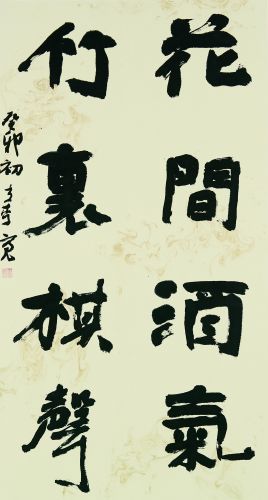 花間酒氣
竹裏棋聲
癸卯初